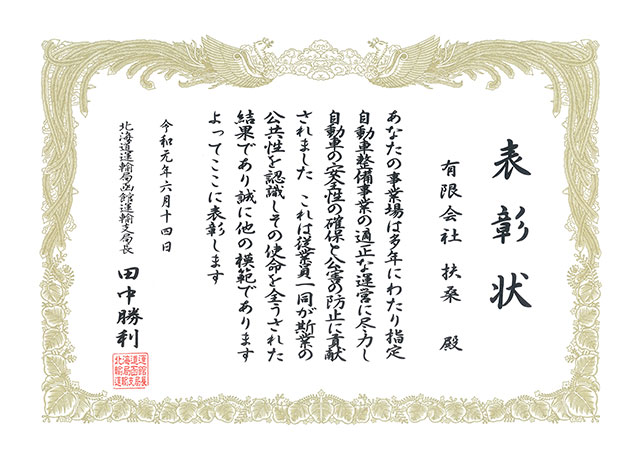 表彰状
有限会社 扶桑 殿
あなたの事業場は多年にわたり指定
自動車整備事業の適正な運営に尽力し
自動車の安全性の確保と公害の防止に貢献
されました これは従業員一同が斯業の
公共性を認識しその使命を全うされた
結果であり誠に他の模範であります
よってここに表彰します
令和元年六月十四日
北海道運輸局函館運輸支局長
田中勝利